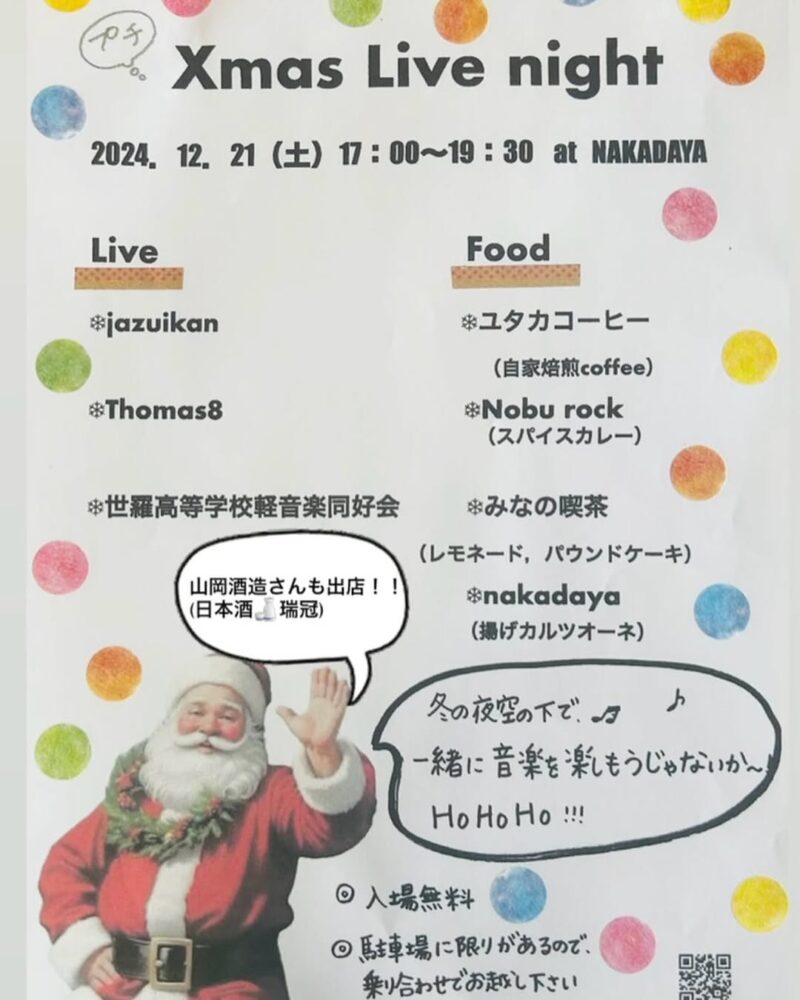 プチ
Xmas Live night
2024. 12. 21（土）17：00〜19：30 at NAKADAYA
Live
❄jazuikan
❄Thomas8
❄世羅高等学校軽音楽同好会
Food
❄ユタカコーヒー
（自家焙煎coffee）
❄Nobu rock
（スパイスカレー）
❄みなの喫茶
（レモネード，パウンドケーキ）
❄nakadaya
（揚げカルツオーネ）
山岡酒造さんも出店！！
(日本酒🍶瑞冠)
冬の夜空の下で、♫ ♪
一緒に音楽を楽しもうじゃないか〜!
HoHoHo !!!
◎ 入場無料
◎ 駐車場に限りがあるので、
乗り合わせでお越し下さい